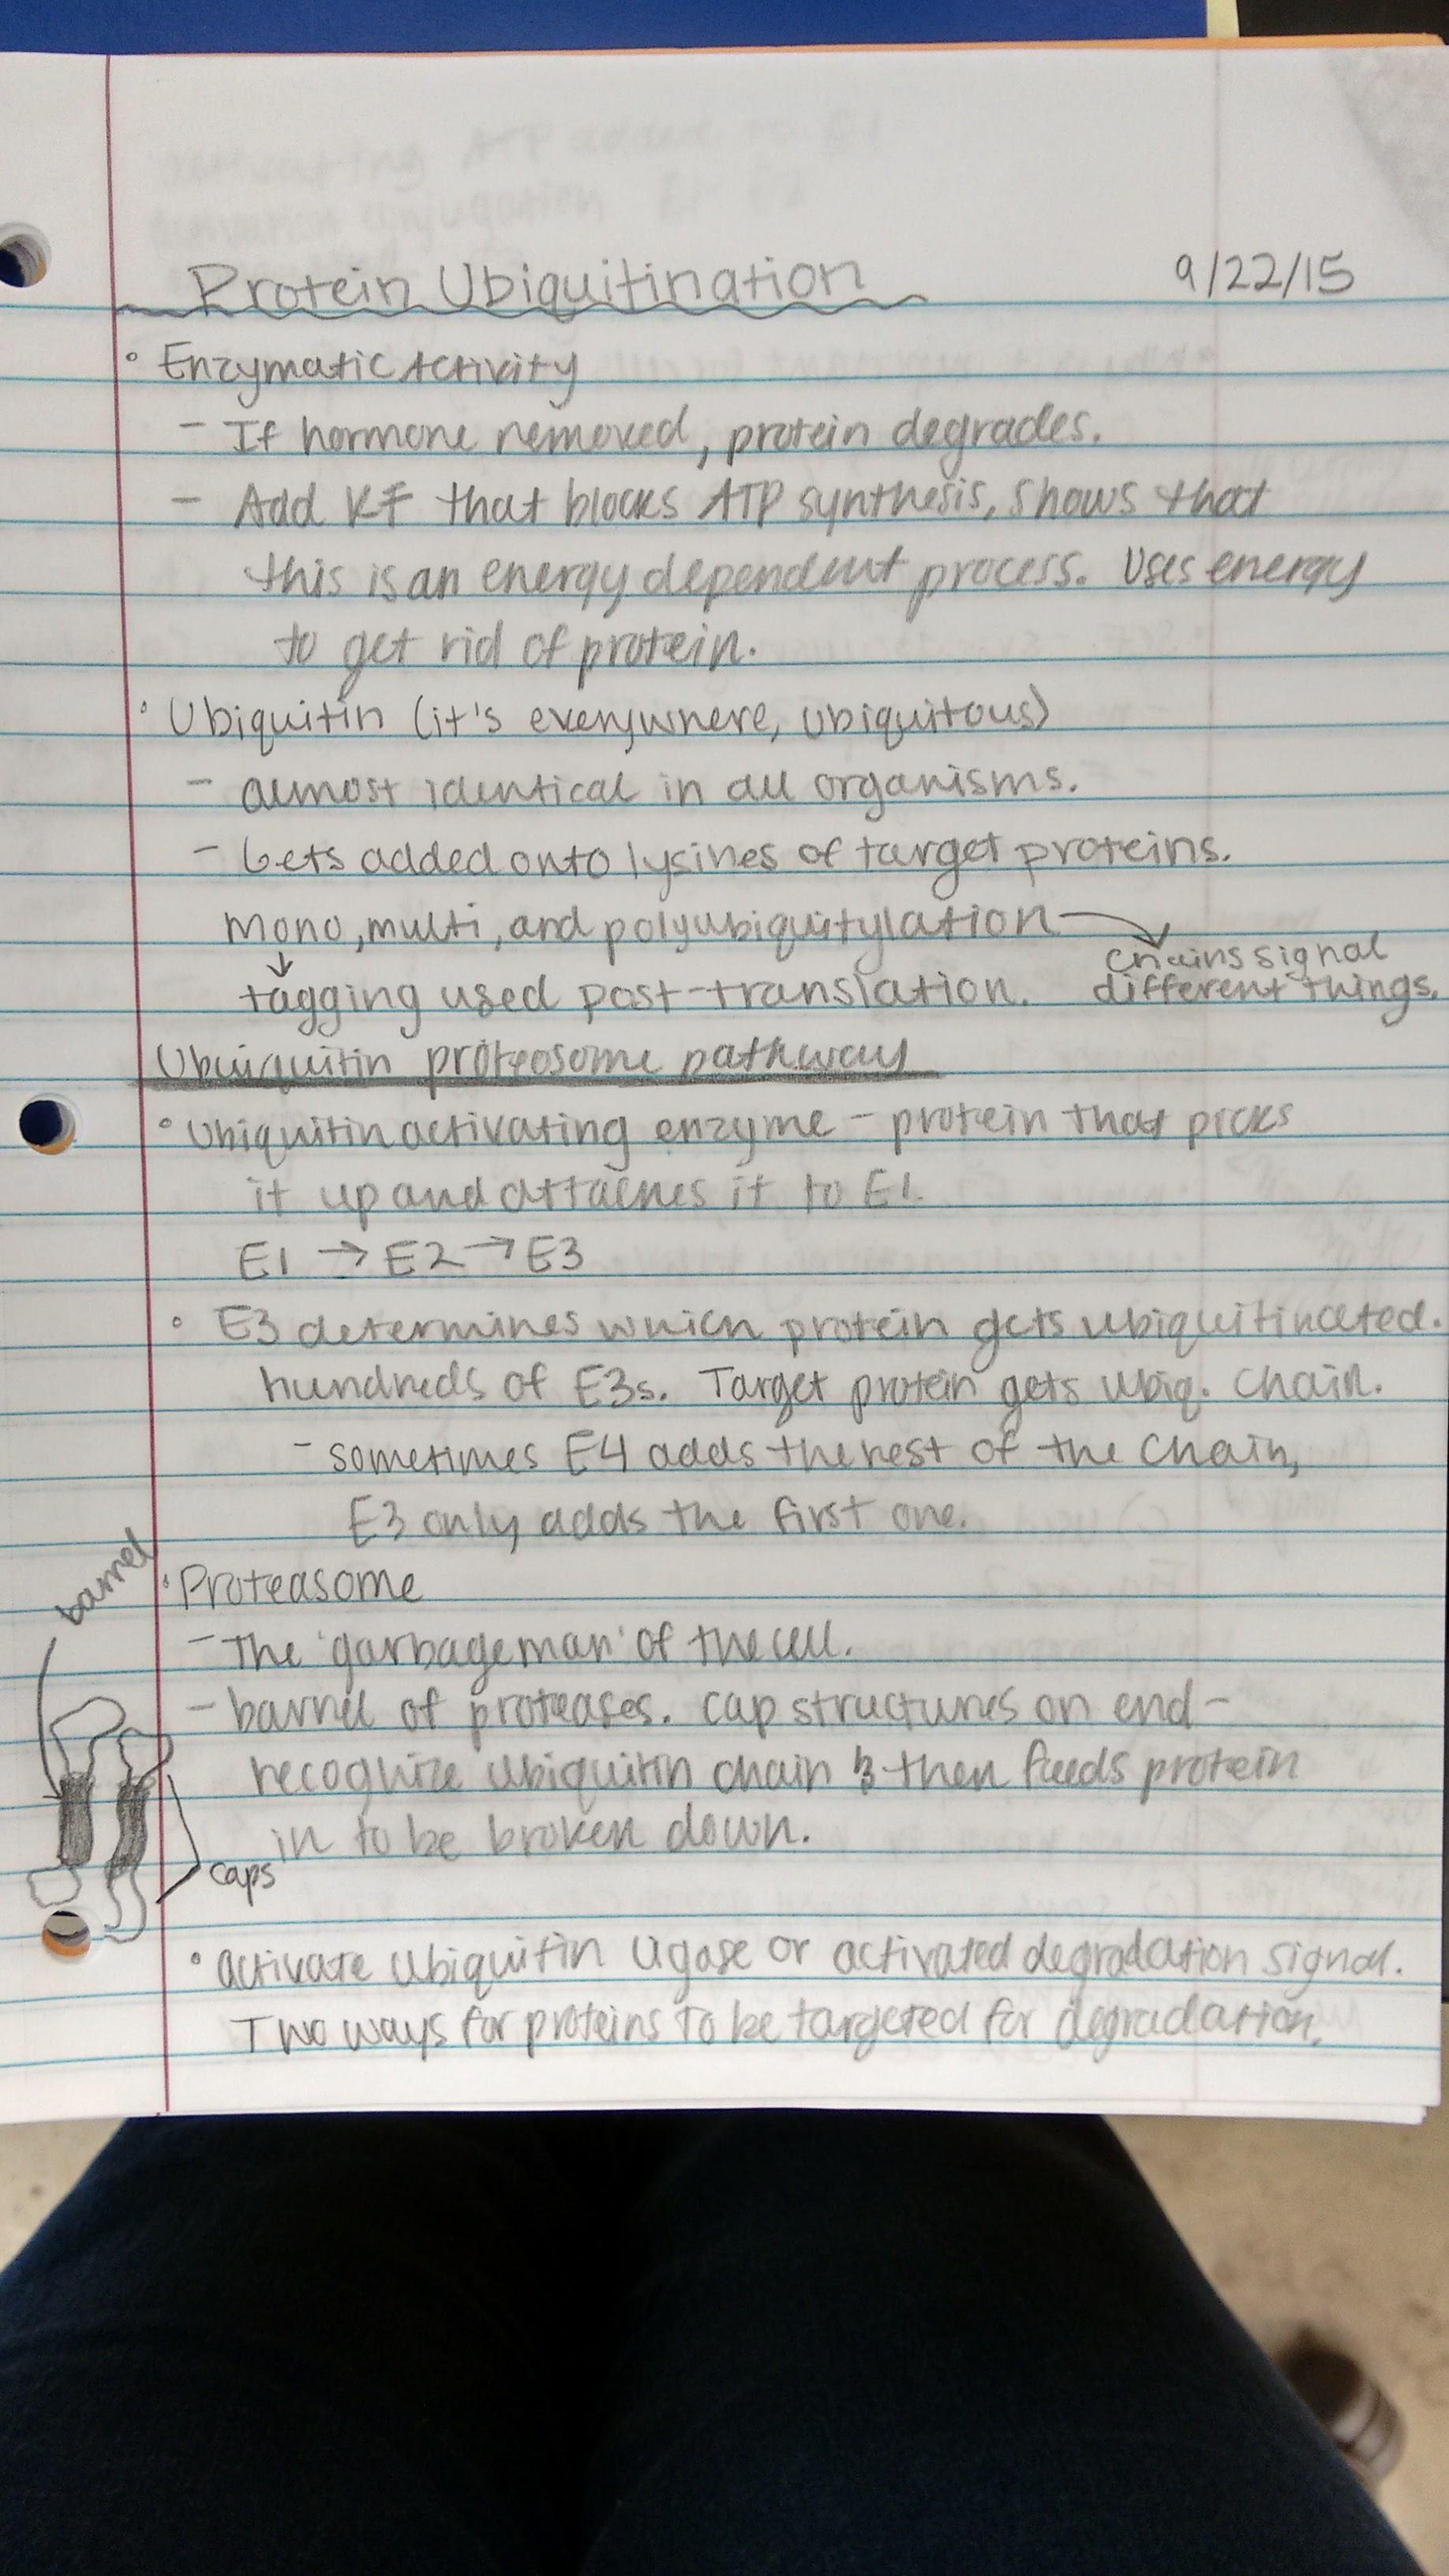 Protein Ubiquitination 9/22/15
° Enzymatic Activity
- If hormone removed, protein degrades.
- Add KF that blocks ATP synthesis, shows that
this is an energy dependent process. Uses energy
to get rid of protein.
° Ubiquitin (it's everywhere, ubiquitous)
- almost identical in all organisms.
- Gets added onto lysines of target proteins.
mono, multi, and polyubiquitylation →
chains signal
↓
tagging used post-translation. different things.
Ubuiquitin proteosome pathway
° Ubiquitin activating enzyme - protein that picks
it up and attaches it to E1.
E1 → E2 → E3
° E3 determines which protein gets ubiquitinated.
hundreds of E3s. Target protein gets ubiq. chain.
- sometimes E4 adds the rest of the chain,
E3 only adds the first one.
barrel
° Proteasome
- The 'garbageman' of the cell.
- barrel of proteases. cap structures on end -
recognize ubiquitin chain & then feeds protein
in to be broken down.
caps
° activate ubiquitin ligase or activated degradation signal.
Two ways for proteins to be targeted for degradation.